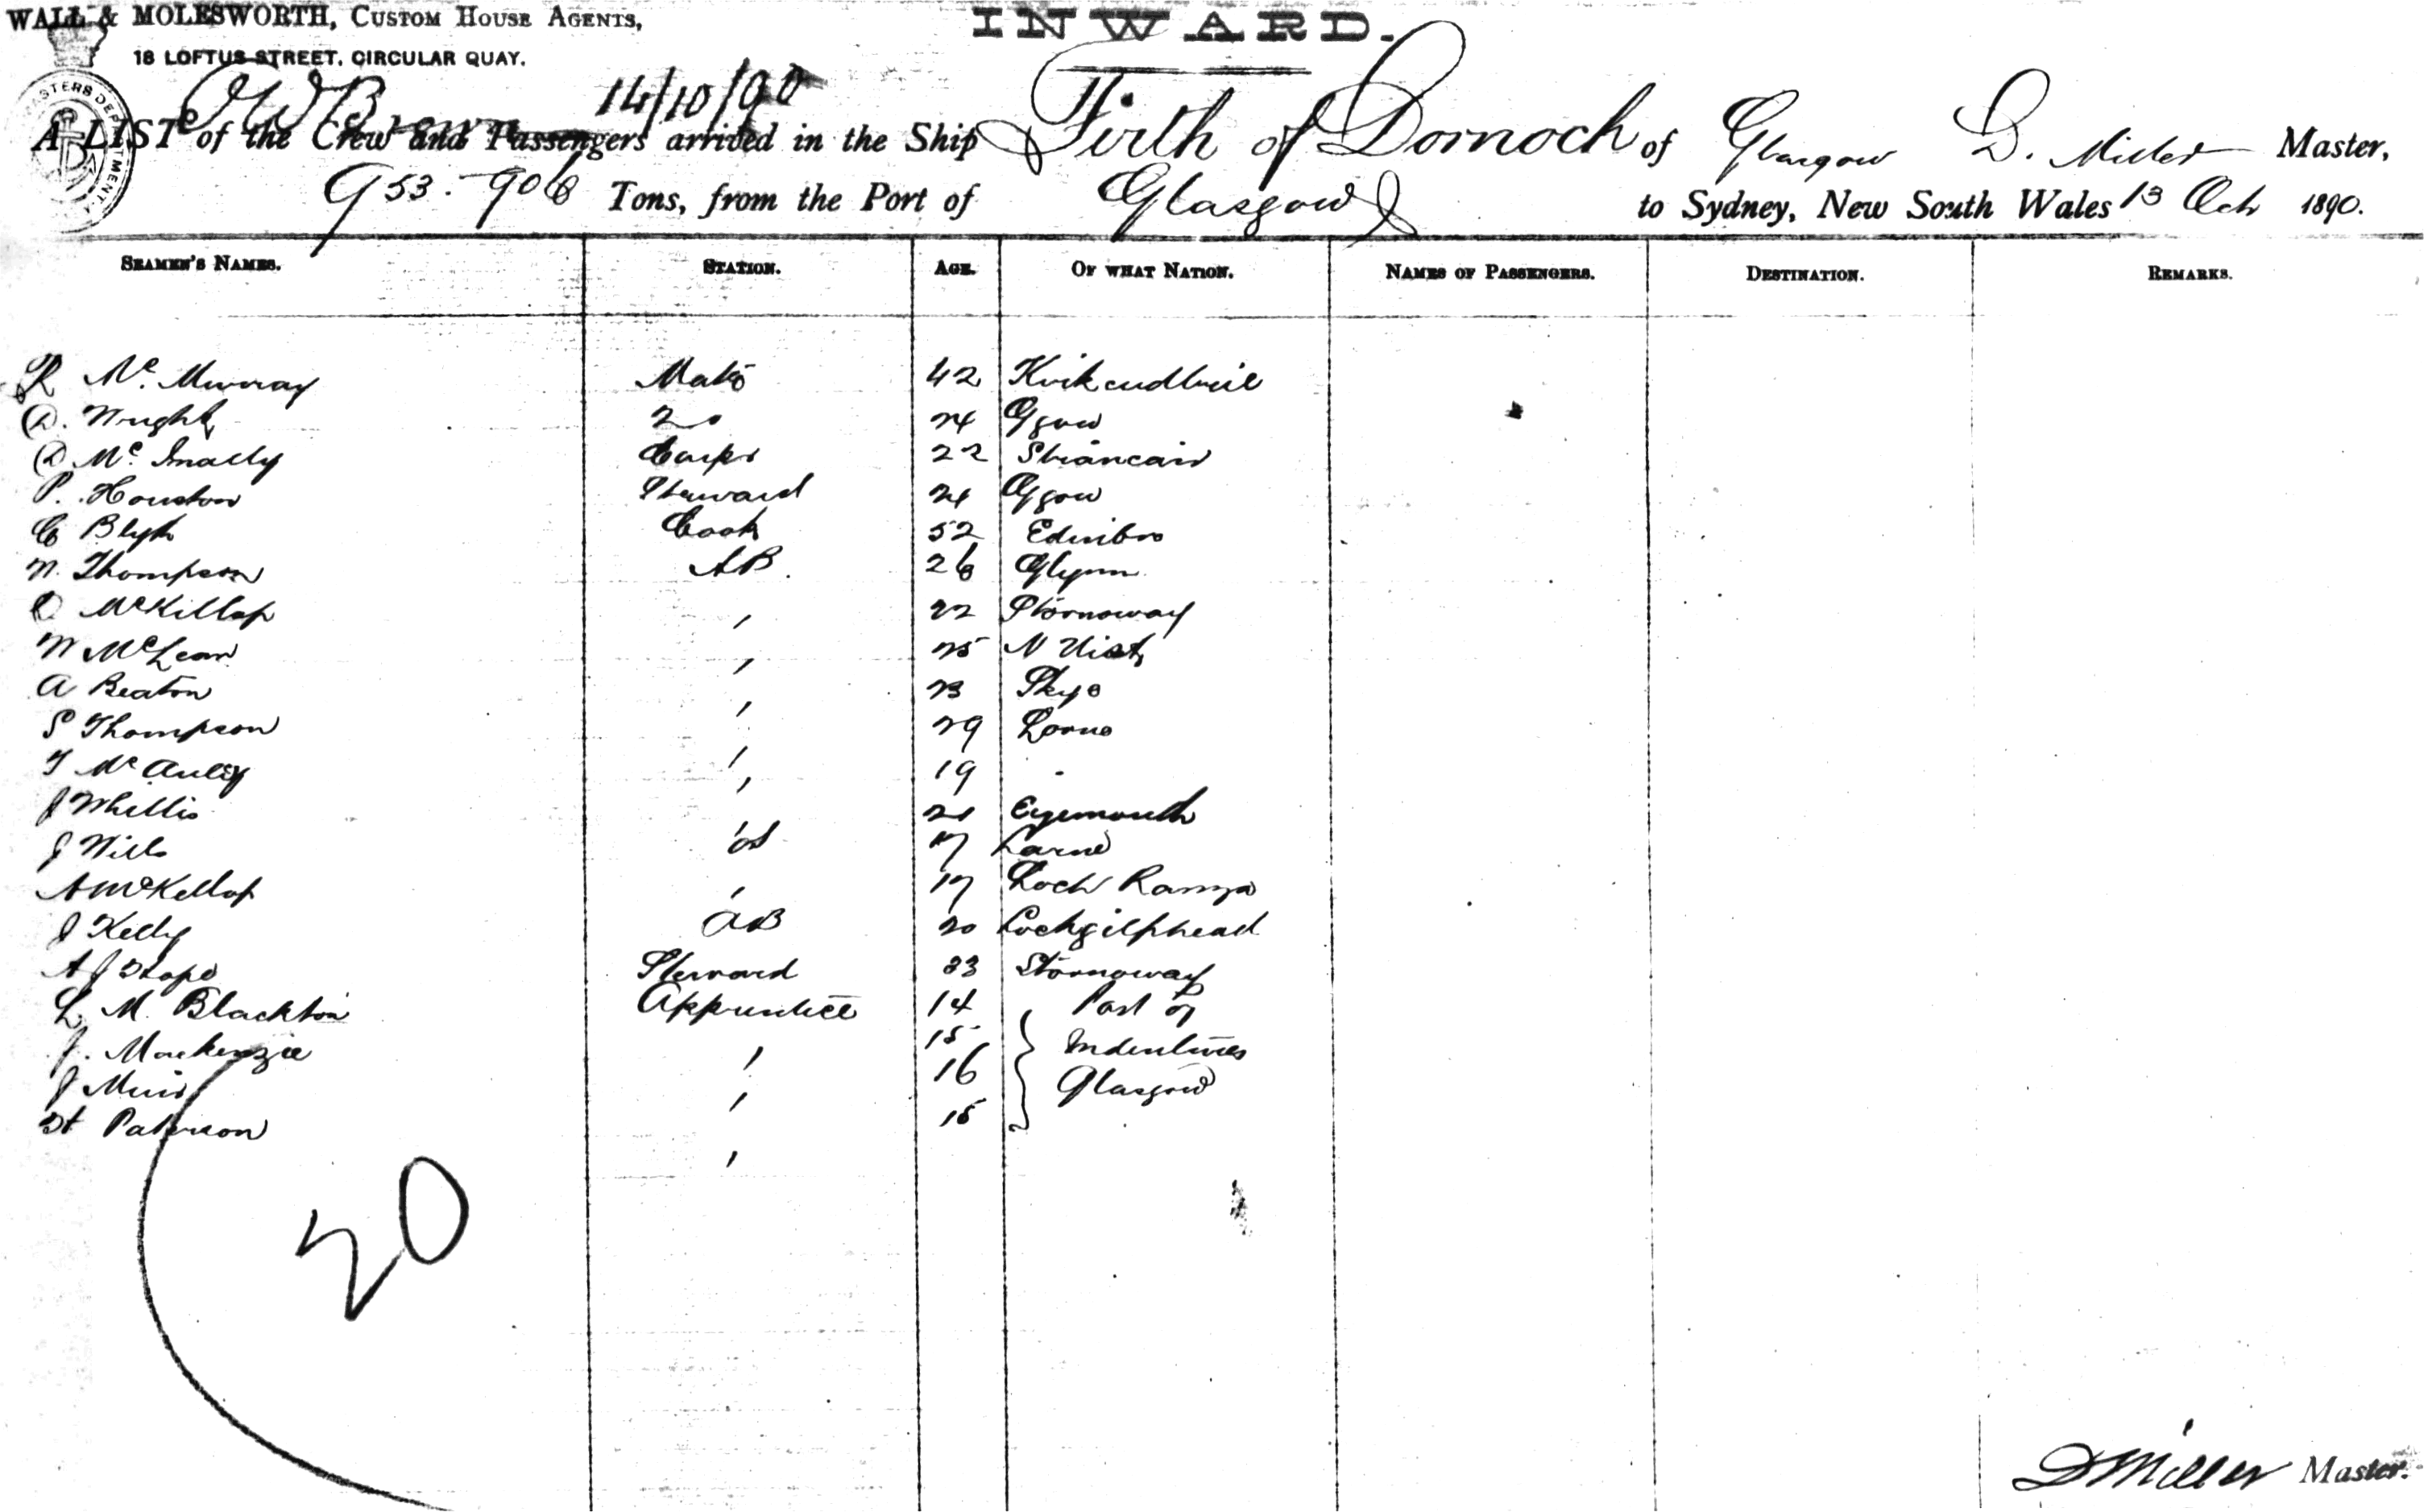 WALL & MOLESWORTH, CUSTOM HOUSE AGENTS,
18 LOFTUS STREET, CIRCULAR QUAY.
INWARD.
14/10/90
A LIST of the Crew and Passengers arrived in the Ship Firth of Dornoch of Glasgow D. Miller Master,
953. 906 Tons, from the Port of Glasgow to Sydney, New South Wales 13 Oct 1890.
SEAMEN'S NAMES. STATION. AGE. OF WHAT NATION. NAMES OF PASSENGERS. DESTINATION. REMARKS.
R Mc. Murray Mate 42 Kirkcudbrie
D. Wright 2o 24 Ggow
D Mc. Inally Carpr 22 Stranraer
P. Houston Steward 24 Ggow
C Blyth Cook 52 Edinbro
W. Thompson AB. 26 Glynn
D McKillop " 22 Stornoway
W McLean " 25 N Uist
A Beaton " 23 Skye
S Thompson " 29 Larne
T McAuley " 19 "
J Whillis " 21 Eyemouth
J Wills OS 17 Larne
A McKellop " 17 Loch Ranza
J Kelly AB 20 Lochgilphead
A J Hope Steward 33 Stornoway
L. M. Blackton Apprentice 14 Port of
J. Mackenzie " 15 Indentures
J Muir " 16 Glasgow
H Paterson " 15
20
D Miller Master.